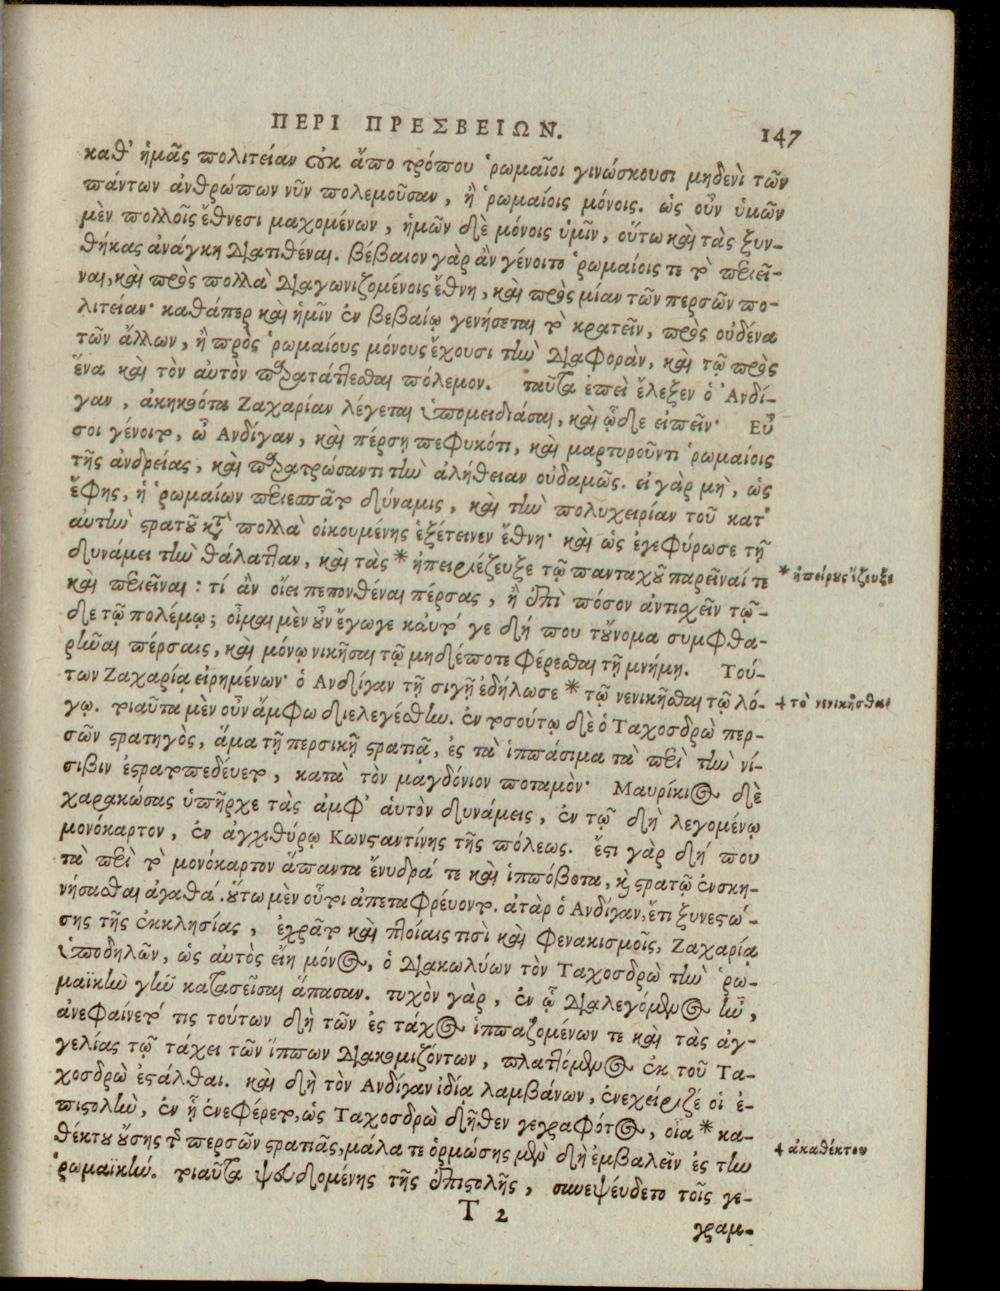 ΠΕΡΙ ΠΡΕΣΒΕΙΩΝ. 147
καθ' ἡμᾶς πολιτείαν οὐκ ἄπο τρόπου ῥωμαῖοι γινώσκουσι μηδενὶ τῶν
πάντων ἀνθρώπων νῦν πολεμοῦσαν, ἢ ῥωμαίοις μόνοις. ὡς οὖν ὑμῶν
μὲν πολλοῖς ἔθνεσι μαχομένων, ἡμῶν δὲ μόνοις ὑμῖν, οὕτω καὶ τὰς ξυν-
θήκας ἀνάγκη διατιθέναι. βέβαιον γὰρ ἂν γένοιτο ῥωμαίοις τε τὸ περιεῖ-
ναι, καὶ πρὸς πολλὰ διαγωνιζομένοις ἔθνη, καὶ πρὸς μίαν τῶν περσῶν πο-
λιτείαν· καθάπερ καὶ ἡμῖν ἐν βεβαίῳ γενήσεται τὸ κρατεῖν, πρὸς οὐδένα
τῶν ἄλλων, ἢ πρὸς ῥωμαίους μόνους ἔχουσι τὴν διαφορὰν, καὶ τῷ πρὸς
ἕνα καὶ τὸν αυτὸν παρατάτλεσθαι πόλεμον. ταῦτα ἐπεὶ ἔλεξεν ὁ Ἀνδί-
γαν, ἀκηκοότα Ζαχαρίαν λέγεται ὑπομειδιάσαι, καὶ ᾧδε εἰπεῖν· Εὖ
σοι γένοιτο, ὦ Ανδίγαν, καὶ πέρσῃ πεφυκότι, καὶ μαρτυροῦντι ῥωμαίοις
τῆς ἀνδρείας, καὶ παρατρώσαντι τὴν ἀλήθειαν οὐδαμῶς. εἰ γὰρ μὴ, ὡς
ἔφης, ἡ ῥωμαίων περιεσπᾶτο δύναμις, καὶ τὴν πολυχειρίαν τοῦ κατ'
αυτὴν στρατοῦ κατὰ πολλὰ οἰκουμένης ἐξέτεινεν ἔθνη· καὶ ὡς ἐγεφύρωσε τῇ
δυνάμει τὴν θάλατταν, καὶ τὰς * ἠπειριέζευξε τῷ πανταχοῦ παρεῖναί τε * ἠπείρους ἔζευξε
καὶ περιεῖναι : τί ἂν οἴει πεπονθέναι πέρσας, ἢ ἐπὶ πόσον ἀντισχεῖν τῷ-
δε τῷ πολέμῳ; οἶμαι μὲν οὖν ἔγωγε καὐτό γε δή που τοὔνομα συμφθα-
ρῆναι πέρσαις, καὶ μόνῳ νικῆσαι τῷ μηδέποτε φέρεσθαι τῇ μνήμῃ. Τού-
των Ζαχαρίᾳ εἰρημένων· ὁ Ανδίγαν τῇ σιγῇ ἐδήλωσε * τῷ νενικῆσθαι τῷ λό- + τὸ νενικῆσθαι
γῳ. τοιαῦτα μὲν οὖν ἄμφω διελεγέσθην. ἐν τοσούτῳ δὲ ὁ Ταχοσδρὼ περ-
σῶν στρατηγὸς, ἅμα τῇ περσικῇ στρατιᾷ, ἐς τὰ ἱππάσιμα τὰ περὶ τὴν νί-
σιβιν ἐστρατοπεδεύετο, κατὰ τὸν μαγδόνιον ποταμὸν· Μαυρίκιος δὲ
χαρακώσας ὑπῆρχε τὰς ἀμφ' αὑτὸν δυνάμεις, ἐν τῷ δὴ λεγομένῳ
μονόκαρτον, ἐν ἀγχιθύρῳ Κωνσταντίνης τῆς πόλεως. ἔστι γὰρ δή που
τὰ περὶ τὸ μονόκαρτον ἅπαντα ἔνυδρά τε καὶ ἱππόβοτα, καὶ στρατῷ ἐνσκη-
νήσασθαι ἀγαθά. οὕτω μὲν οὗτοι ἀπεταφρεύοντο. ἀτὰρ ὁ Ανδίγαν, ἔτι ξυνεστώ-
σης τῆς ἐκκλησίας, ἐχρᾶτο καὶ πτοίαις τισὶ καὶ φενακισμοῖς, Ζαχαρίᾳ
ὑποδηλῶν, ὡς αὐτὸς εἴη μόνος, ὁ διακωλύων τὸν Ταχοσδρὼ τὴν ῥω-
μαϊκὴν γῆν κατασεῖσαι ἅπασαν. τυχὸν γὰρ, ἐν ᾧ διαλεγόμενος ἦν,
ἀνεφαίνετό τις τούτων δὴ τῶν ἐς τάχος ἱππαζομένων τε καὶ τὰς ἀγ-
γελίας τῷ τάχει τῶν ἵππων διακομιζόντων, πλαττόμενος ἐκ τοῦ Τα-
χοσδρὼ ἐστάλθαι. καὶ δὴ τὸν Ανδίγαν ἰδίᾳ λαμβάνων, ἐνεχείριζέ οἱ ἐ-
πιστολὴν, ἐν ᾗ ἐνεφέρετο, ὡς Ταχοσδρὼ δῆθεν γεγραφότος, οἷα * κα-
θέκτου οὔσης τῆς περσῶν στρατιᾶς, μάλα τε ὁρμώσης μὲν δὴ ἐμβαλεῖν ἐς τὴν + ἀκαθέκτου
ῥωμαϊκήν. τοιαῦτα ψευδομένης τῆς ἐπιστολῆς, συνεψεύδετο τοῖς γε-
T 2
γραμ-